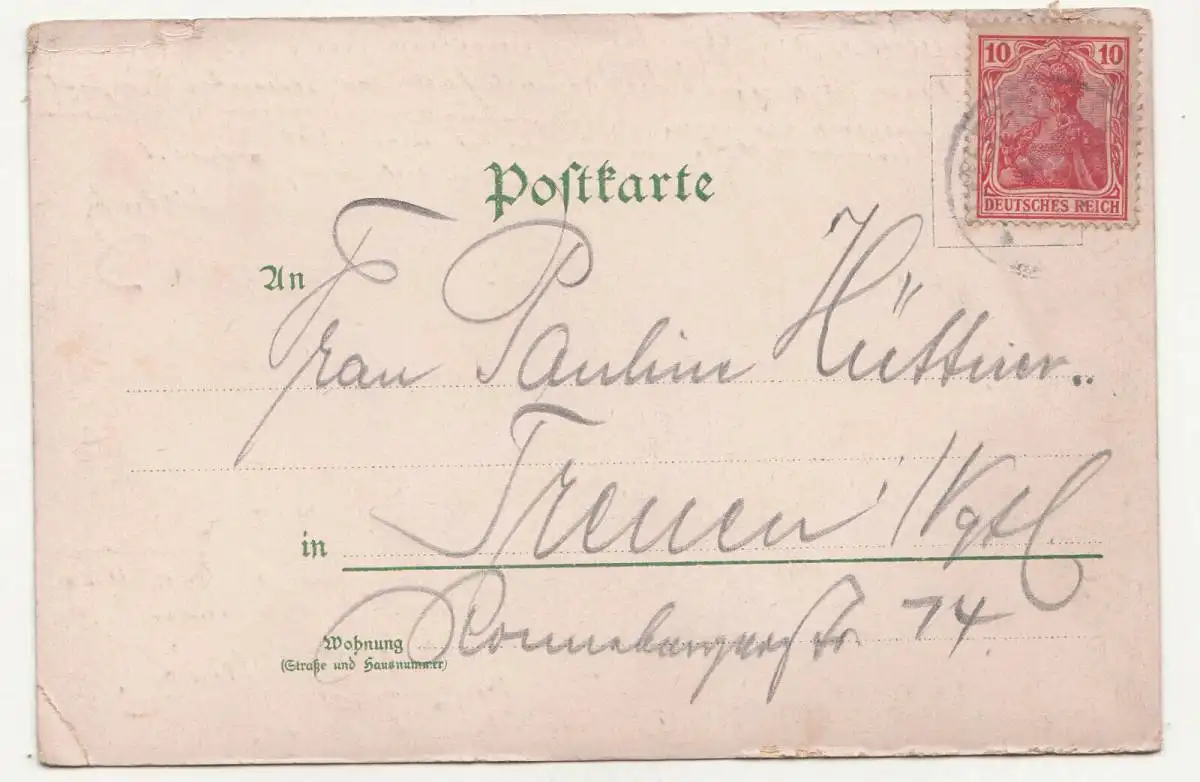 10 10
DEUTSCHES REICH
Postkarte
An
Frau Pauline Hüttner..
in Treuen i/Vgtl
Wohnung
(Straße und Hausnummer)
Ronneburgerstr. 74.